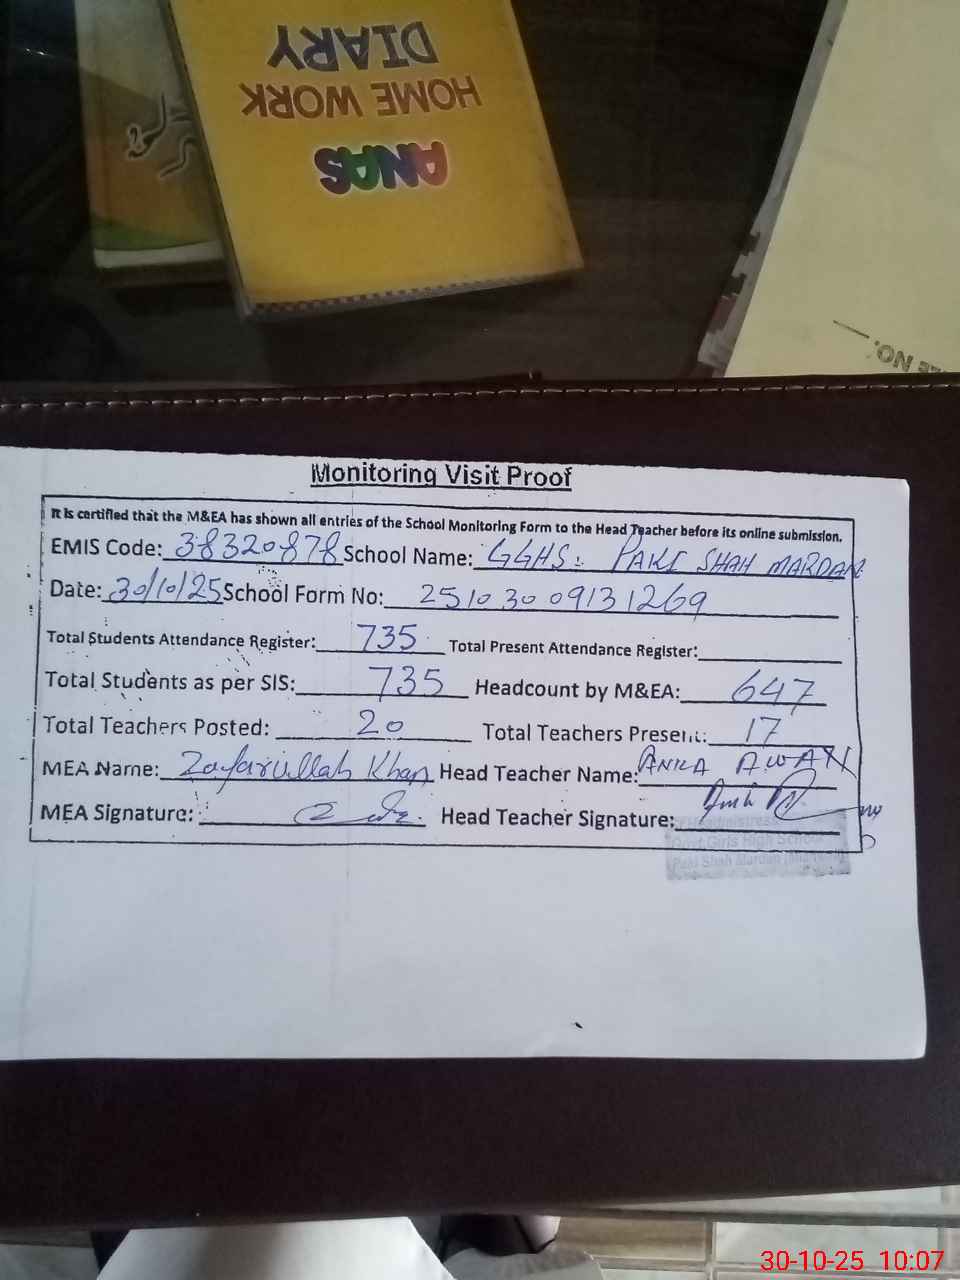 ANAS
HOME WORK
DIARY
NO.
Monitoring Visit Proof
It is certified that the M&EA has shown all entries of the School Monitoring Form to the Head Teacher before its online submission.
EMIS Code: 38320878 School Name: GGHS: PAKI SHAH MARDAN
Date: 30/10/25 School Form No: 25103009131269
Total Students Attendance Register: 735 Total Present Attendance Register:
Total Students as per SIS: 735 Headcount by M&EA: 647
Total Teachers Posted: 20 Total Teachers Present: 17
MEA Name: Zafarullah Khan Head Teacher Name: ANILA AWAN
MEA Signature: Head Teacher Signature:
Headmistress
Govt. Girls High School
Paki Shah Mardan (Mianwali)
30-10-25 10:07